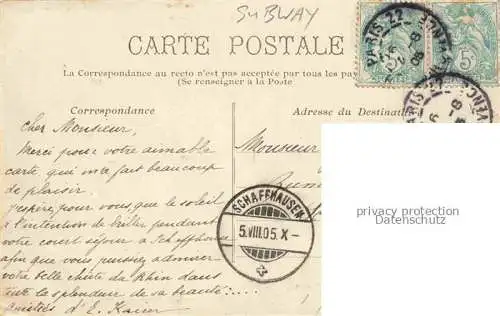 SUBWAY
CARTE POSTALE
La Correspondance au recto n'est pas acceptée par tous les pays
(Se renseigner à la Poste
Correspondance
Adresse du Destinat
Cher Monsieur,
Merci pour votre aimable
carte qui m'a fait beaucoup
de plaisir.
J'espère, pour vous, que le soleil
a l'intention de briller pendant
votre court séjour à Schaffhouse
afin que vous puissiez admirer
votre belle chute du Rhin dans
toute la splendeur de sa beauté
Amitiés d'E.
Monsieur
PARIS 22
5
5
SCHAFFHAUSEN
5.VIII.05.X-
privacy protection
Datenschutz